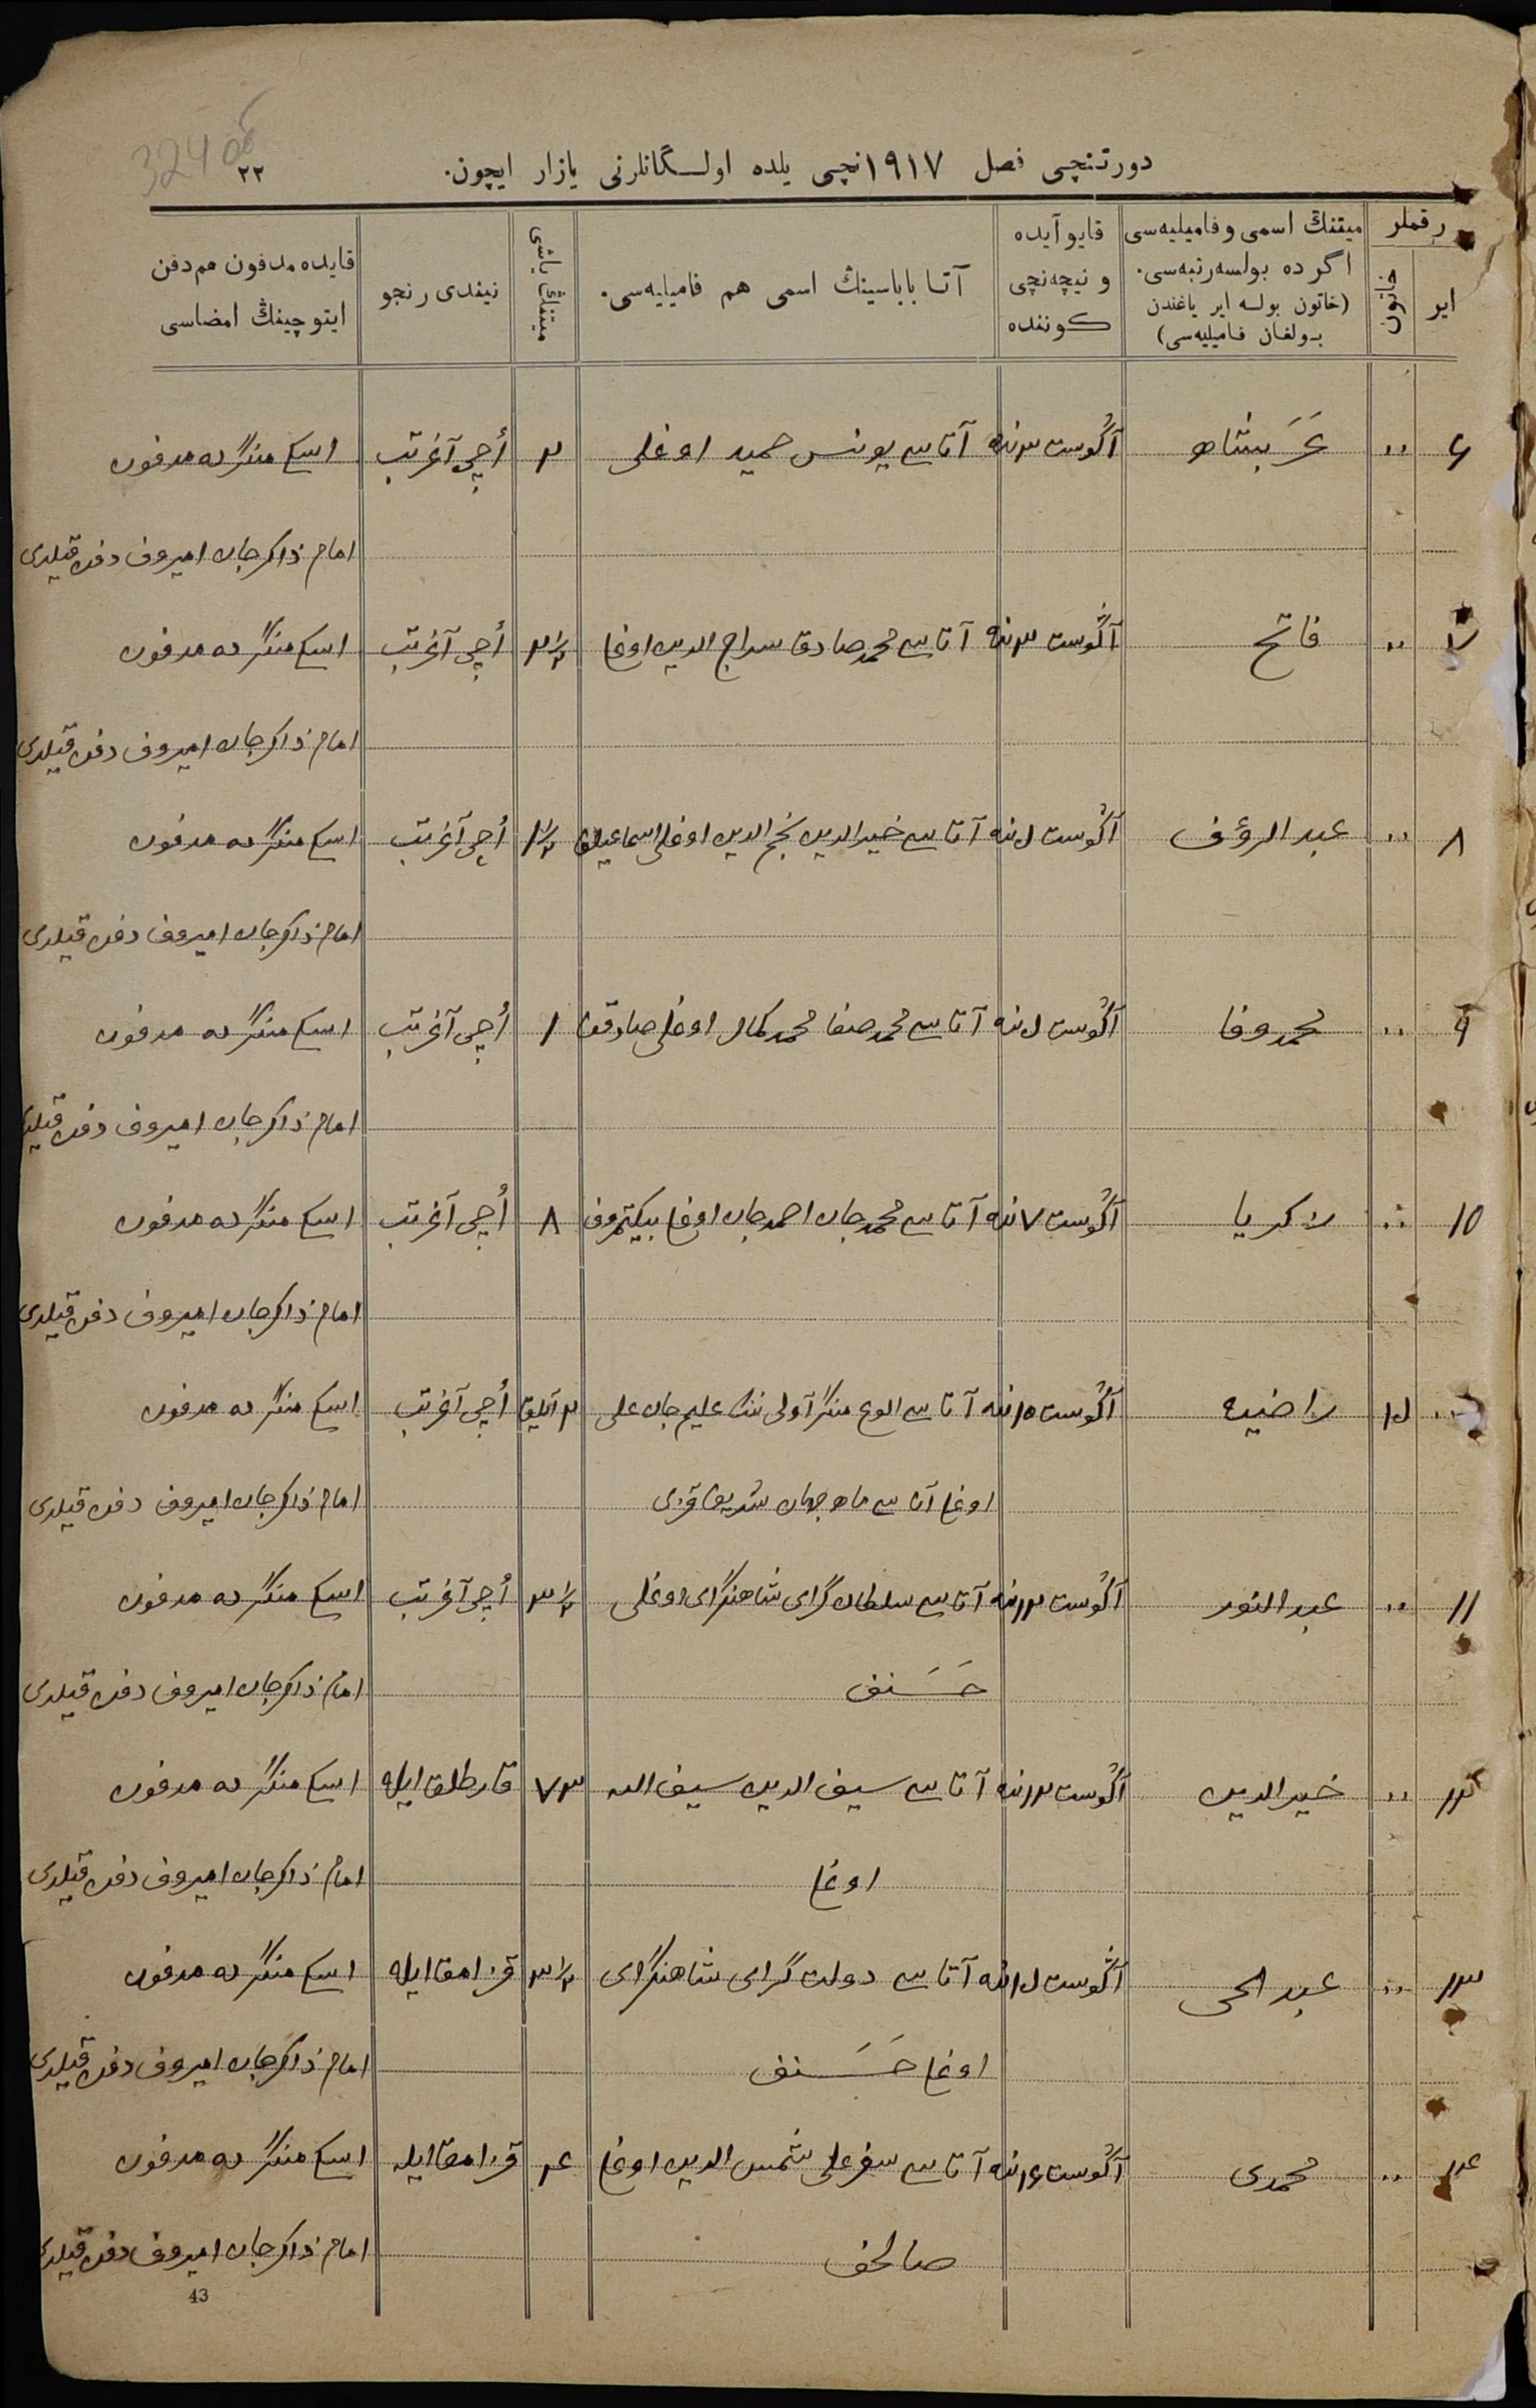 324 об
دورتنچی فصل ۱۹۱۷نچی یلده اولـگانلرنی یازار ایچون.
۲۲
رقملر
ایر
خاتون
میتنڭ اسمی و فامیلیه‌سی
اگر ده بولسه رتبه‌سی.
(خاتون بولسه ایر یاغندن
بـولغان فـامیلیه‌سی)
قایو آیده
و نیچه‌نچی
کوننده
آتـا بابـاسینڭ اسمی هم فامیلیه‌سی.
میتنڭ یاشی
نیندی رنجو
قایده مدفون هم دفن
ایتوچینڭ امضاسی
۶ ،، عَرَبشاه آگوست ۳نده آتاسی یونس حمید اوغلی ۲ أچی آغرتب اسکی منگرده مدفون
امام ذاکرجان امیروف دفن قیلدی
۷ ،، فاتح آگوست ۳نده آتاسی محمدصادق سراج الدین اوغلی ۲½ أچی آغرتب اسکی منگرده مدفون
امام ذاکرجان امیروف دفن قیلدی
۸ ،، عبد الرؤف آگوست ۵نده آتاسی خیرالدین نجم الدین اوغلی أچی آغرتب اسکی منگرده مدفون
امام ذاکرجان امیروف دفن قیلدی
۹ ،، محمدوفا آگوست ۵نده آتاسی محمدصفا محمدکمال اوغلی صادقف ۱ أچی آغرتب اسکی منگرده مدفون
امام ذاکرجان امیروف دفن قیلدی
۱۰ ،، زکریا آگوست ۷نده آتاسی محمدجان احمدجان اوغلی بیکتمروف ۸ أچی آغرتب اسکی منگرده مدفون
امام ذاکرجان امیروف دفن قیلدی
،، ۱۵ راضیه آگوست ۱۰نده آتاسی الوغ منگر آولی ننڭ علیم جان علی ۲ آیلق أچی آغرتب اسکی منگرده مدفون
اوغلی آناسی ماه جهان شریف قزی
امام ذاکرجان امیروف دفن قیلدی
۱۱ ،، عبد النور آگوست ۱۲نده آتاسی سلطان گرای شاهنگرای اوغلی ۳½ أچی آغرتب اسکی منگرده مدفون
حَسَـنف
امام ذاکرجان امیروف دفن قیلدی
۱۲ ،، خیرالدین آگوست ۱۲نده آتاسی سیف الدین سیف الله ۷۳ قارطلق ایله اسکی منگرده مدفون
اوغلی
امام ذاکرجان امیروف دفن قیلدی
۱۳ ،، عبد الحی آگوست ۱۵نده آتاسی دولت گرای شاهنگرای ۳½ قزامق ایله اسکی منگرده مدفون
اوغلی حَسَـنف
امام ذاکرجان امیروف دفن قیلدی
۱۴ ،، محمدی آگوست ۱۶نده آتاسی سفرعلی شمس الدین اوغلی قزامق ایله اسکی منگرده مدفون
صالحف
امام ذاکرجان امیروف دفن قیلدی
43